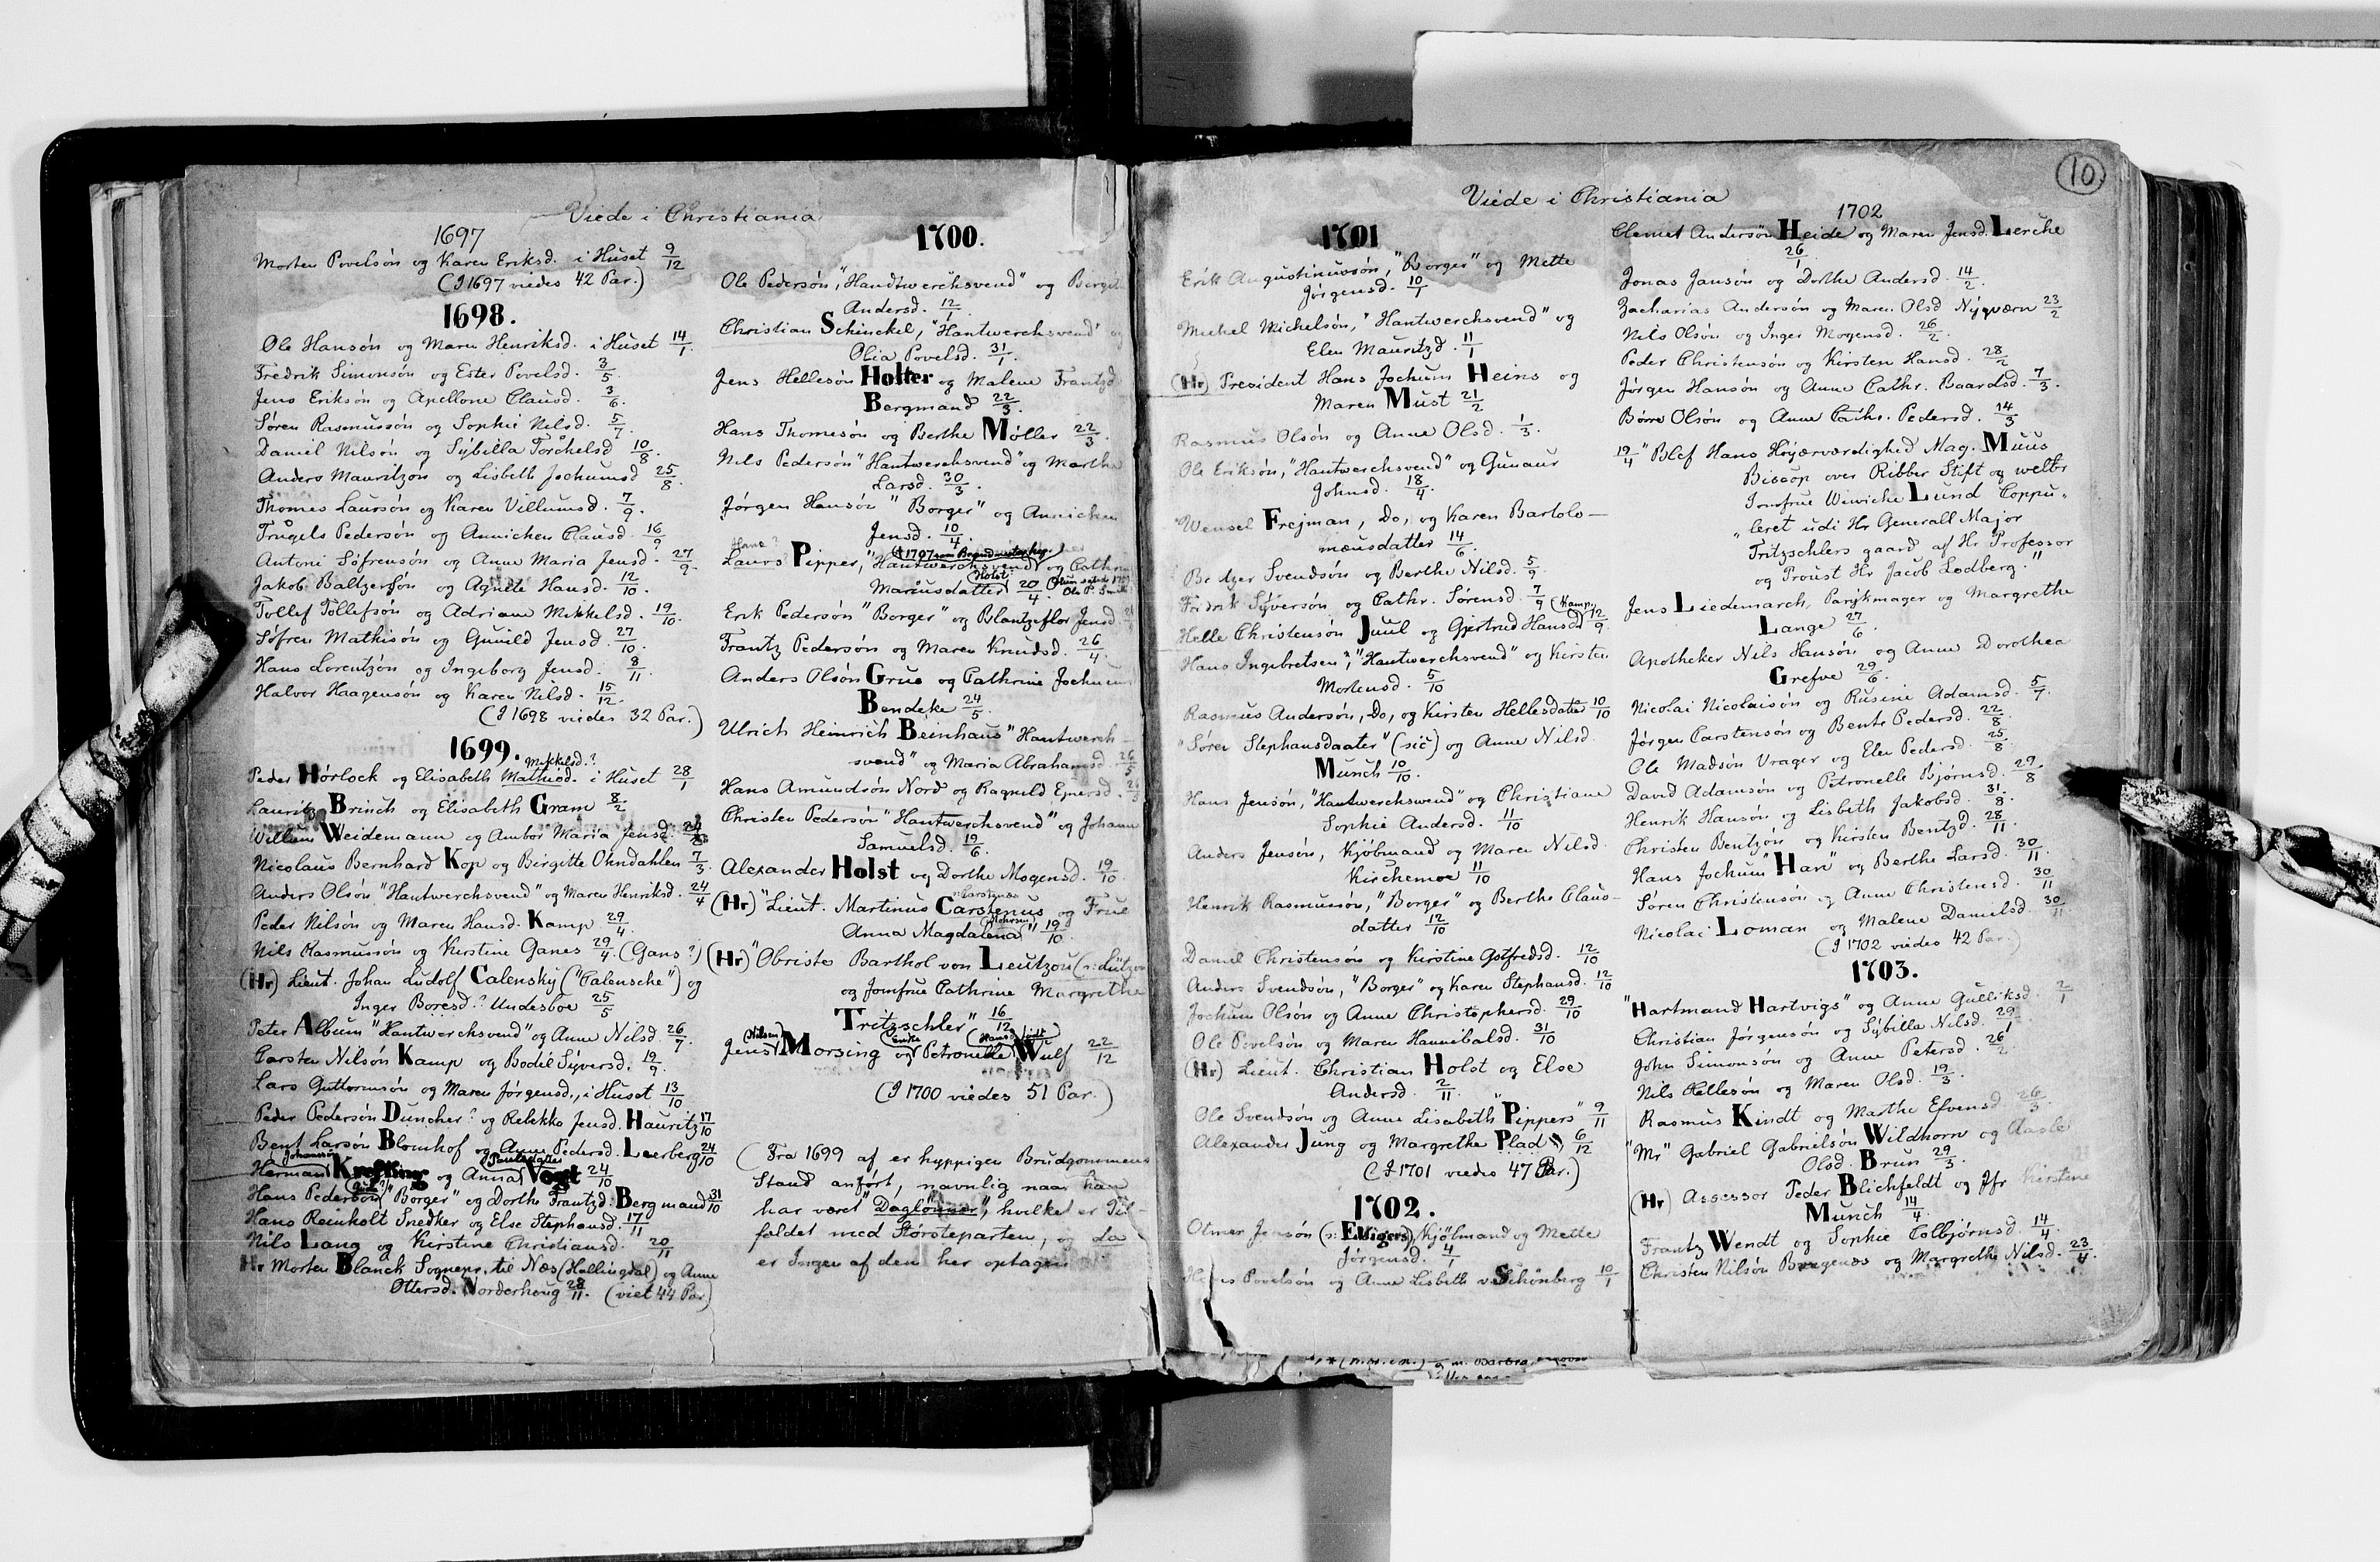 Viede i Christiania
1697
Morten Povelsön og Karen Eriksd. i Huset 9/12
(I 1697 viedes 42 Par.)
1698.
Ole Hansön og Maren Henriksd. i Huset 14/1.
Fredrik Simonsön og Ester Povelsd. 3/5.
Jens Eriksön og Apellone Clausd. 3/6.
Sören Rasmussön og Sophie Nilsd. 5/7.
Daniel Nilsön og Sÿbilla Torchelsd 10/8.
Anders Mauritzön og Lisbeth Jochumsd 25/8.
Thomes Laursön og Karen Villumsd. 7/9.
Trugels Pedersön og Annichen Clausd. 16/9
Antoni Söfrensön og Anne Maria Jensd. 27/9.
Jakob Baltzersön og Agnete Hansd. 12/10.
Tollef Tollefsön og Adriane Mikkelsd. 19/10.
Söfren Mathisön og Gunild Jensd. 27/10.
Hans Lorentzön og Ingeborg Jensd. 8/11.
Halvor Haagensön og Karen Nilsd. 15/12.
(I 1698 viedes 32 Par.)
1699.
Mikkelsd.?
Peder Hörlock og Elisabeth Mathisd. i Huset 28/1
Lauritz Brinch og Elisabeth Gram 8/2
Willum Weidemann og Ambor Maria Jensd.
Nicolaus Bernhard Kop og Birgitte Ohndahlen 7/3.
Anders Olsön "Hantwerchsvend" og Maren Henriksd. 24/4
Peder Nilsön og Maren Hansd. Kamp 29/4.
Nils Rasmussön og Kirstine Ganes 29/4. (Gans?)
(Hr) Lieut. Johan Ludolf Calenskÿ ("Calensche") og
Inger Boresd.? Undesboe 25/5
Peter Album "Hantwerchsvend" og Anne Nilsd. 26/7.
Carsten Nilsön Kamp og Bodil Sÿversd. 19/9.
Lars Guttormsön og Maren Jörgensd., i Huset 13/10
Peder Pedersön Duncher? og Rebekka Jensd. Hauritz 17/10
Bent Larsön Blomhof og Anne Pedersd. Leerberg 24/10
Johansön
Herman Krefting og Anna Vogt 24/10
Hans Pedersön "Borger" og Dorthe Frantzd. Bergmand 31/10
Hans Reinholt Snedker og Else Stephansd. 17/11
Nils Lang og Kirstine Christiansd. 20/11
Hr Morten Blanck Sognepr. til Næs (Hallingdal) og Anne
Ottersd. Norderhoug 28/11. (viet 44 Par)
1700.
Ole Pedersön, "Handtwerchsvend" og
Andersd. 12/1.
Christian Schinckel, "Hantwerchsvend"
Olia Povelsd. 31/1.
Jens Hellesön Holter og Malene Frantzd
Bergmand 22/3.
Hans Thomesön og Berthe Möller 22/3.
Nils Pedersön "Hantwerchsvend" og Marthe
Larsd. 30/3.
Jörgen Hansön "Borger" og Annichen
Jensd. 10/4.
Hans?
Laurs Pipper, "Hantwerchsvend" og Cathrine
Holst
Mariusdatter 20/4.
Erik Pedersön "Borger" og Blantzeflor Jensd.
Frantz Pedersön og Maren Knudsd. 26/4.
Anders Olsön Grue og Cathrine Jochum
Bendeke 24/5.
Ulrich Heinrich Beinhaus "Hantwerch-
svend" og Maria Abrahamsd. 26/5
Hans Amundsön Nord og Ragnild Ejnersd.
Christen Pedersön "Hantwerchsvend" og Johanne
Samuelsd. 19/6.
Alexander Holst og Dorthe Mogensd. 19/10.
Carstens
(Hr) "Lieut. Martinus Carstenus og Frue
Anna Magdalena" 19/10.
(Hr) "Obriste Barthol von Leutzou
og Jomfrue Cathrine Margrethe
Tritzschler" 16/12
Nilsen
Jens Morsing og Petronelle Wulf 22/12
(I 1700 viedes 51 Par.)
(Fra 1699 af er hyppigen Brudgommens
Stand anfört, navnlig naar han
har været "Daglönner", hvilket er Til-
fældet med Störsteparten, og da
er Ingen af dem her optagen
10
Viede i Christiania
1701
Erik Augustinussön, "Borger" og Mette
Jörgensd. 10/1
Michel Michelsön, "Hantwerchsvend" og
Elen Mauritzd. 11/1
(Hr) President Hans Jochum Heins og
Maren Must 21/2
Rasmus Olsön og Anne Olsd. 1/3.
Ole Eriksön, "Hantwerchsvend" og Gunaur
Johnsd. 18/4.
Wensel Frejman, Do, og Karen Bartolo-
mæusdatter 14/6.
Svendsön og Berthe Nilsd. 5/9.
Fridrik Sÿversön og Cathr. Sörensd. 7/9
(Kamp.)
Helle Christensön Juul og Gjertrud Hansd 12/9.
Hans Ingebretsen, "Hantwerchsvend" og Kirsten
Mortensd. 5/10
Rasmus Andersön, Do, og Kirsten Hellesdatter 10/10
"Sören Stephansdaater" (sic) og Anne Nilsd.
Munch 10/10.
Hans Jensön, "Hantwerchsvend" og Christiane
Sophie Andersd. 11/10
Anders Jensön, Kjöbmand og Maren Nilsd.
Kirchemoe 11/10
Henrik Rasmussön, "Borger" og Berthe Claus-
datter 12/10
Daniel Christensön og Kirstine Gotfredsd. 12/10
Anders Svendsön, "Borger" og Karen Stephansd. 12/10
Jochum Olsön og Anne Christophersd. 29/10
Ole Povelsön og Maren Hannibalsd. 31/10
(Hr) Lieut. Christian Holst og Else
Andersd. 2/11.
Ole Svendsön og Anne Lisabeth "Pippers" 9/11
Alexander Jung og Margrethe Plad 6/12
(I 1701 viedes 47 Par.)
1702.
Otmer Jensön (ɔ: Elligers), Kjöbmand og Mette
Jörgensd. 4/1
Povelsön og Anne Lisbeth v. Schönberg 10/1
1702
Clemet Andersön Heide og Maren Jensd. Lerche
26/1
Jonas Jansön og Dorthe Andersd. 14/2.
Zacharias Andersön og Maren Olsd Nÿqværn 23/2
Nils Olsön og Inger Mogensd. 26/2.
Peder Christensön og Kirsten Hansd. 28/2
Jörgen Hansön og Anne Cathr. Baardsd. 7/3.
Börre Olsön og Anne Cathr. Pedersd. 14/3
19/4 "Blef Hans Höÿærværdighed Mag. Muus
Biscop over Ribber Stift og welbr
Jomfrue Wiwicke Lund Coppu-
leret udi Hr Generall Major
Tritzschlers gaard af Hr Professor
og Proust Hr Jacob Lodberg."
Jens Liedemarch, Parÿkmager og Margrethe
Lange 27/6.
Apotheker Nils Hansön og Anne Dorothea
Grefve 29/6.
Nicolai Nicolaisön og Rusine Adamsd. 5/7.
Jörgen Carstensön og Bente Pedersd. 22/8.
Ole Madsön Vrager og Elen Pedersd. 25/8.
David Adamsön og Petronelle Björnsd. 29/8
Henrik Hansön og Lisbeth Jakobsd. 31/8.
Christen Bentzön og Kirsten Bentzd. 28/11.
Hans Jochum "Har" og Berthe Larsd. 30/11.
Sören Christensön og Anne Christensd. 30/11
Nicolai Loman og Malene Danielsd. 30/11
(I 1702 viedes 42 Par.)
1703.
"Hartmand Hartvigs" og Anne Gulliksd. 2/1
Christian Jörgensön og Sÿbilla Nilsd. 29/1
John Simonsön og Anne Petersd. 26/2
Nils Hellesön og Maren Olsd. 19/3.
Rasmus Kindt og Marthe Efvensd 26/3.
"Mr" Gabriel Gabrielsön Wildhorn og Aasle
Olsd. Brun 29/3.
(Hr) Assessor Peder Blichfeldt og Jfr Kirstine
Munch 14/4.
Frantz Wendt og Sophie Colbjörnsd. 14/4
Christen Nilsön Bragenæs og Margrethe Nilsd. 23/4.